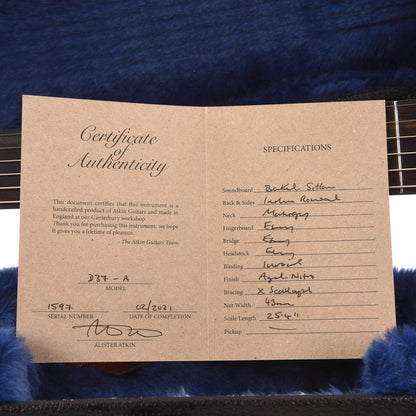 Certificate
of
Authenticity
This document certifies that this instrument is a
handcrafted product of Atkin Guitars and made in
England at our Canterbury workshop.
Thank you for purchasing this instrument, we hope
it gives you a lifetime of pleasure.
The Atkin Guitars Team
D37 - A
MODEL
1597 02/2021
SERIAL NUMBER DATE OF COMPLETION
ALISTER ATKIN
SPECIFICATIONS
Soundboard Baked Sitka
Back & Sides Indian Rosewood
Neck Mahogany
Fingerboard Ebony
Bridge Ebony
Headstock Ebony
Binding
Finish Aged Nitro
Bracing X Scalloped
Nut Width 43mm
Scale Length 25.4"
Pickup